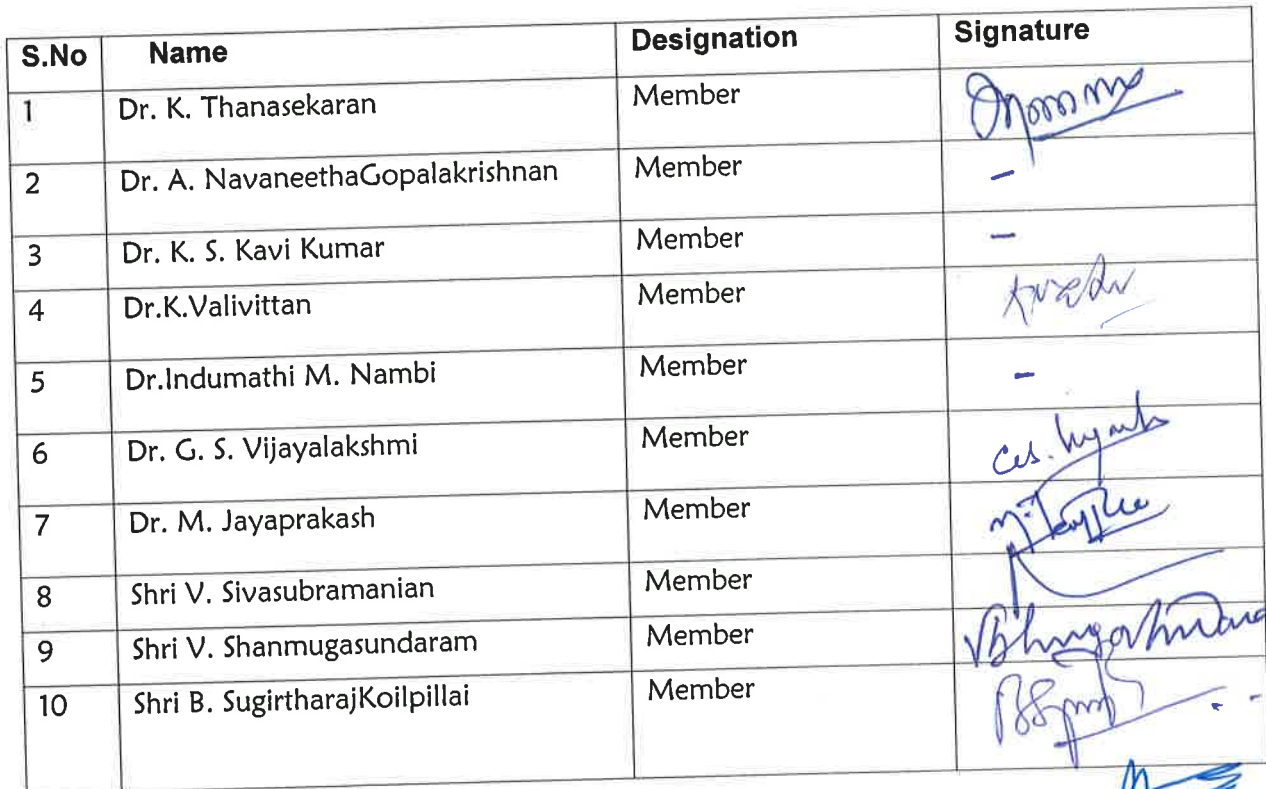 S.No Name Designation Signature
1 Dr. K. Thanasekaran Member
2 Dr. A. NavaneethaGopalakrishnan Member -
3 Dr. K. S. Kavi Kumar Member -
4 Dr.K.Valivittan Member
5 Dr.Indumathi M. Nambi Member -
6 Dr. G. S. Vijayalakshmi Member
7 Dr. M. Jayaprakash Member
8 Shri V. Sivasubramanian Member
9 Shri V. Shanmugasundaram Member
10 Shri B. SugirtharajKoilpillai Member